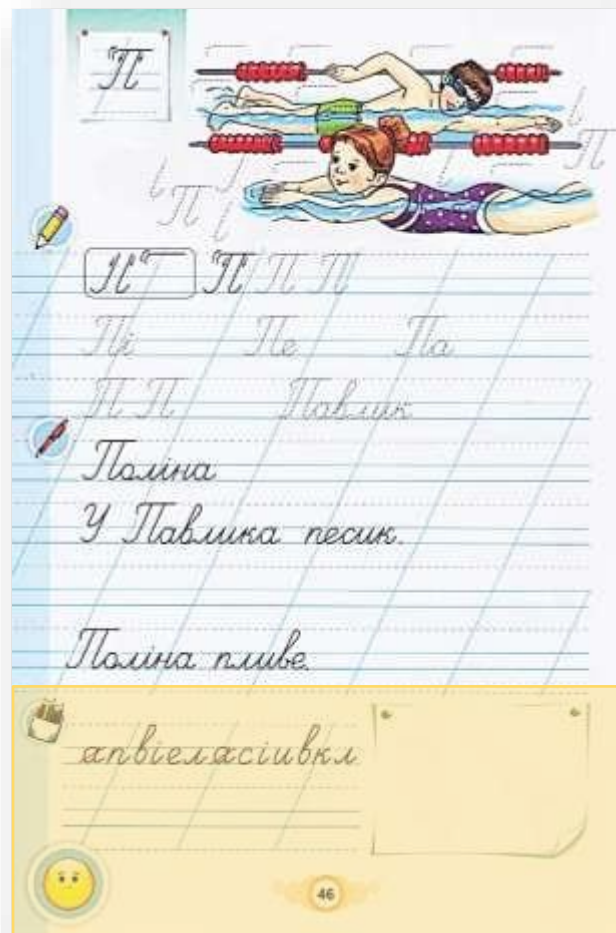 П
П
П П П
Пі Пе Па
П П Павлик
Поліна
У Павлика песик.
Поліна пливе.
апвіеласіивкл
46